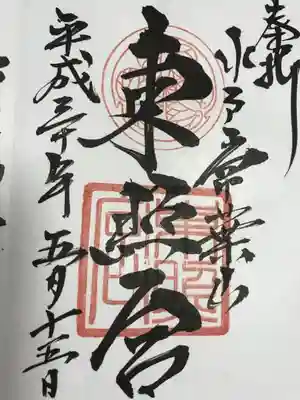 奉拝
水戸常葉山
東照宮
平成三十年五月十五日